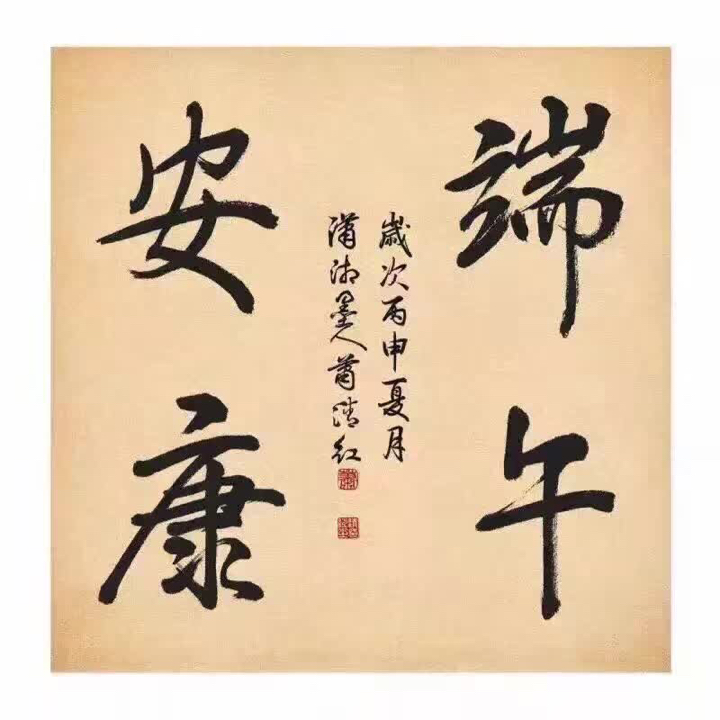 端午
安康
歲次丙申夏月
瀟湘墨人蕭清紅